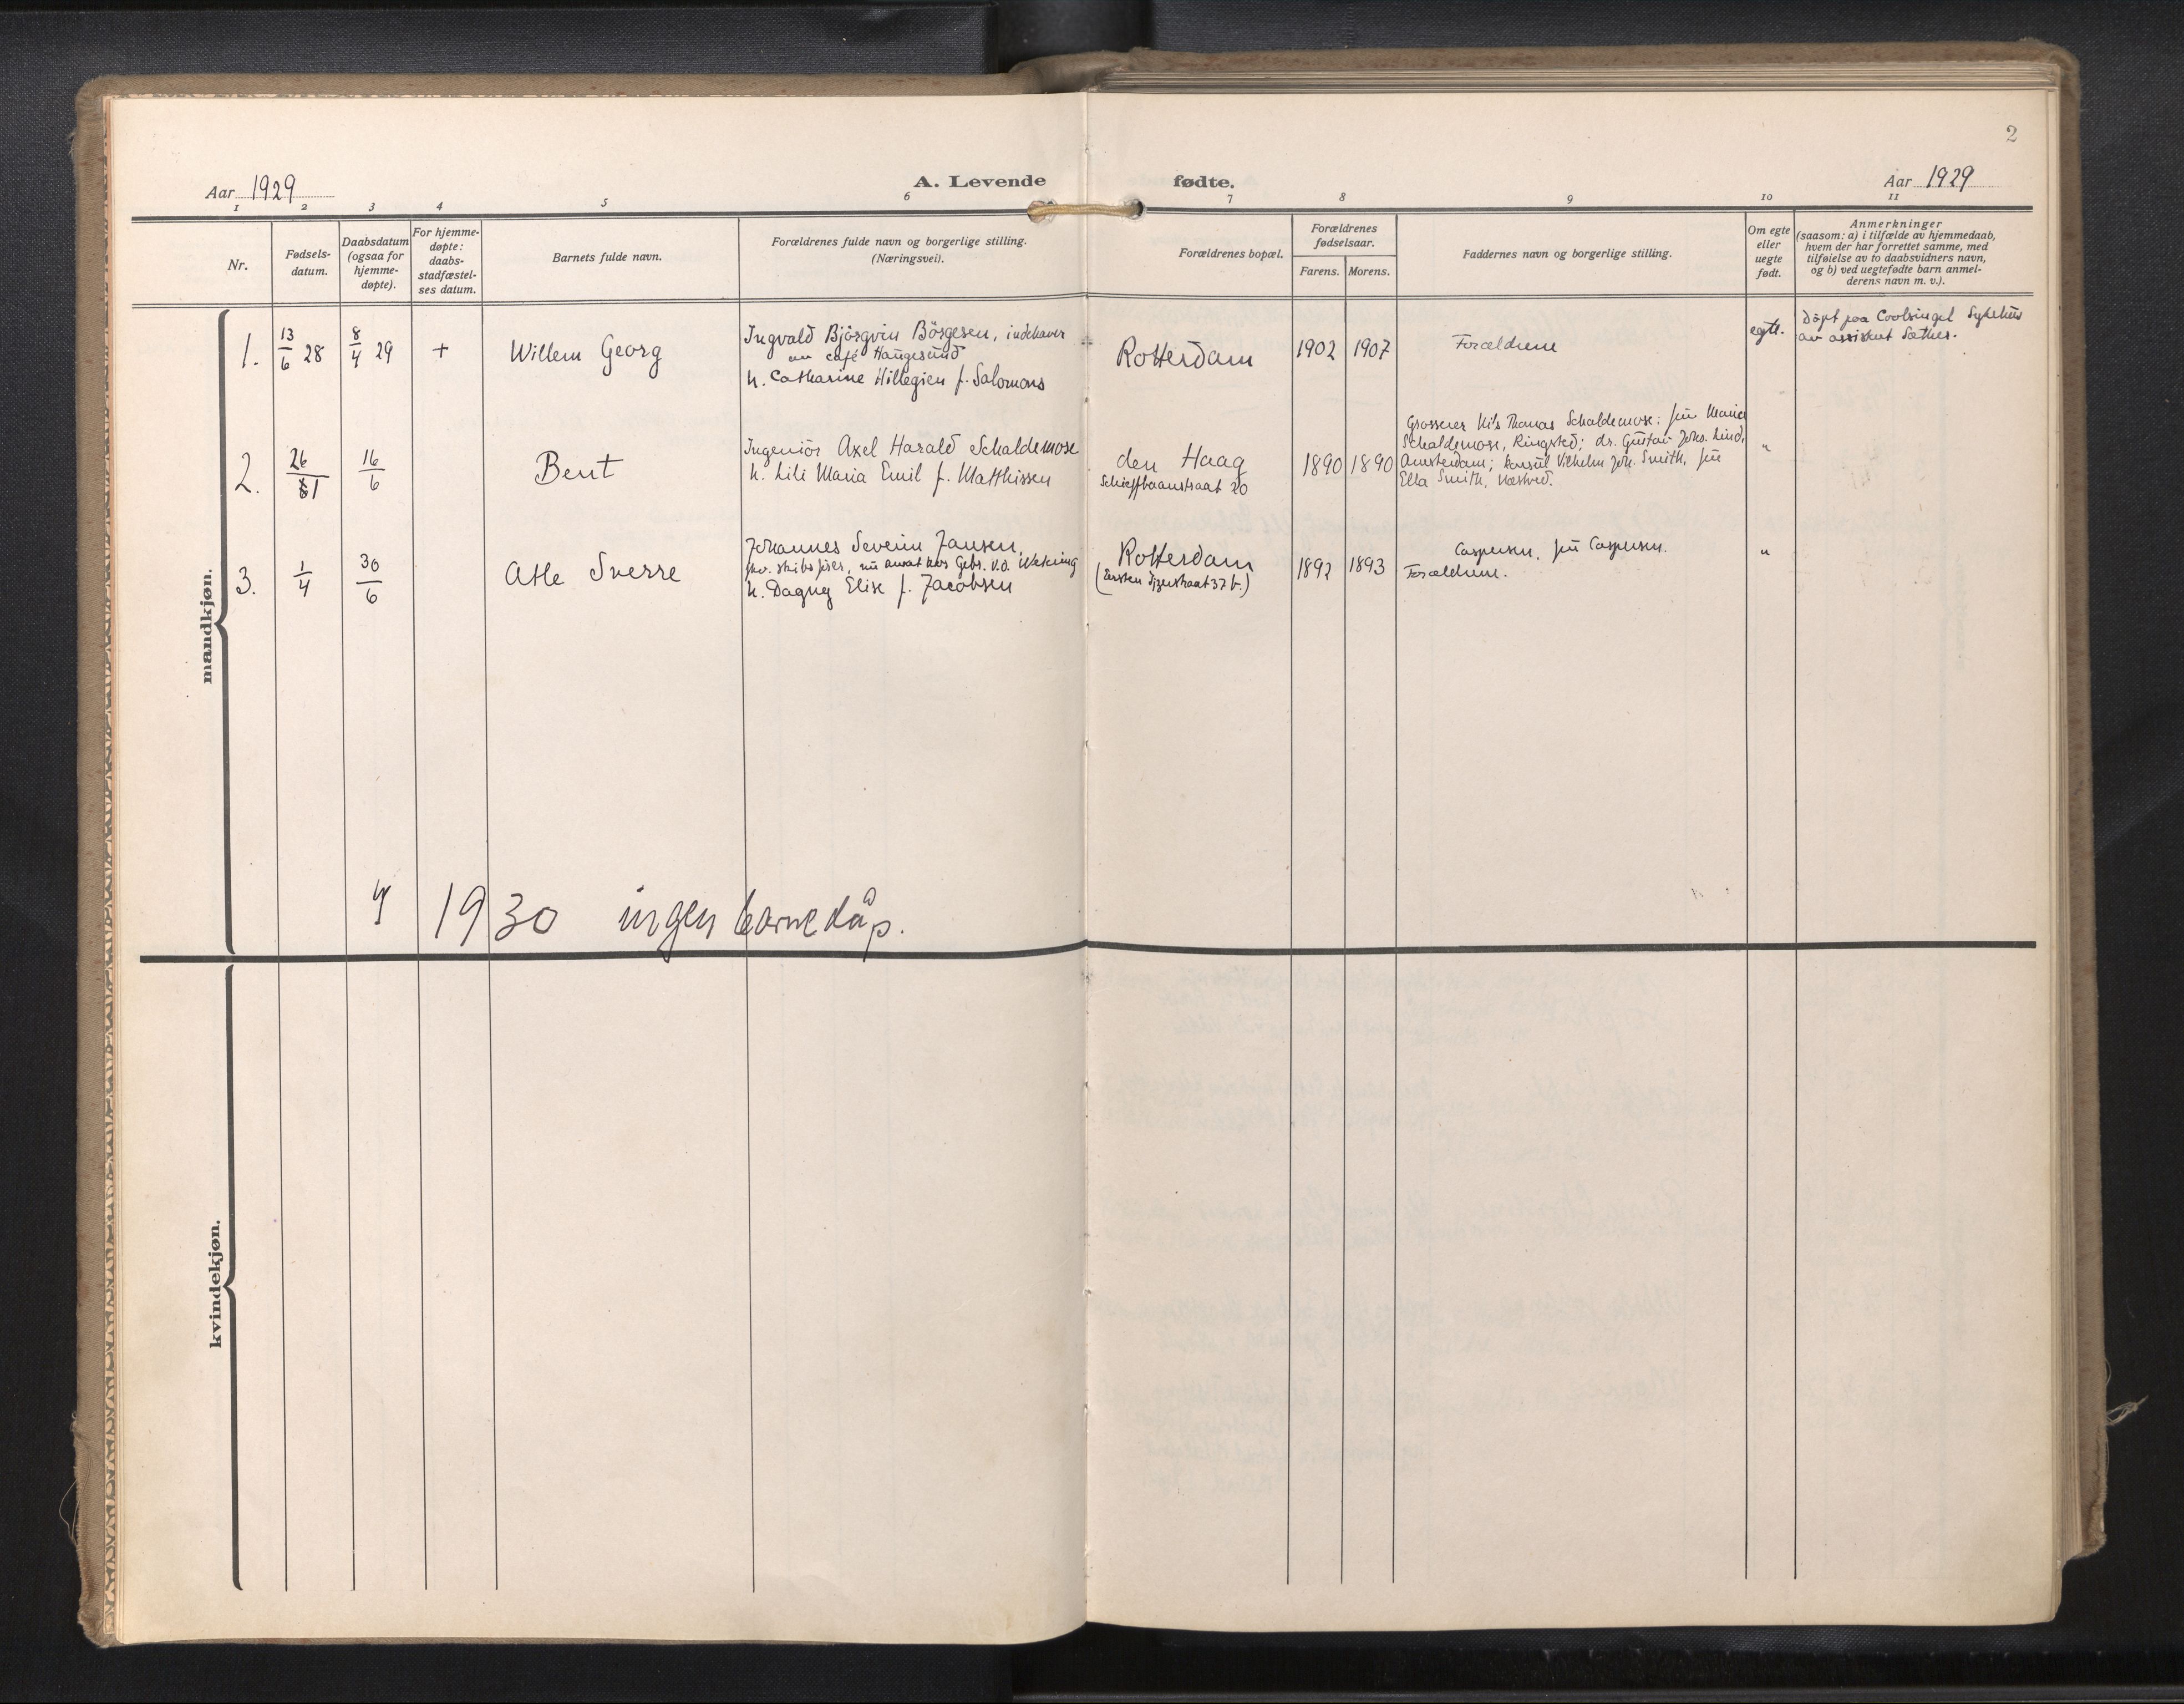 2
Aar 1929
A. Levende fødte.
Aar 1929
1 2 3 4 5 6 7 8 9 10 11
Nr.
Fødsels-
datum.
Daabsdatum
(ogsaa for
hjemme-
døpte).
For hjemme-
døpte:
daabs-
stadfæstel-
ses datum.
Barnets fulde navn.
Forældrenes fulde navn og borgerlige stilling.
(Næringsvei).
Forældrenes bopæl.
Forældrenes
fødselsaar.
Farens. Morens.
Faddernes navn og borgerlige stilling.
Om egte
eller
uegte
født.
Anmerkninger
(saasom: a) i tilfælde av hjemmedaab,
hvem der har forrettet samme, med
tilføielse av to daabsvidners navn,
og b) ved uegtefødte barn anmel-
derens navn m. v.).
mandkjøn.
1.
13/6 28
8/4 29
+
Willem Georg
Ingvald Björgvin Börgesen, indehaver
av café Haugesund
h. Catharine Hillegien f. Salomons
Rotterdam
1902 1907
Forældrene
egte.
Döpt paa Coolsingel Sykehus
av assistent Sæther.
2.
26/1
16/6
Bent
Ingeniör Axel Harald Schaldemose
h. Lili Maria Emil f. Matthissen
den Haag
20
1890 1890
Grosserer Nils Thomas Schaldemose: fru Maria
Schaldemose, Ringsted; dr. Gustav Johs. Lind,
Amsterdam; konsul Vilhelm Joh. Smith, fru
Ella Smith, Næstved.
"
3.
1/4
30/6
Atle Sverre
Johannes Severin Jansen,
skibsfører, nu ansat hos Gebr. v.d. Wetering
h. Dagny Elise f. Jacobsen
Rotterdam
37 b.)
1892 1893
Caspersen, fru Caspersen.
Forældrene.
"
1930 ingen barnedåp.
kvindekjøn.